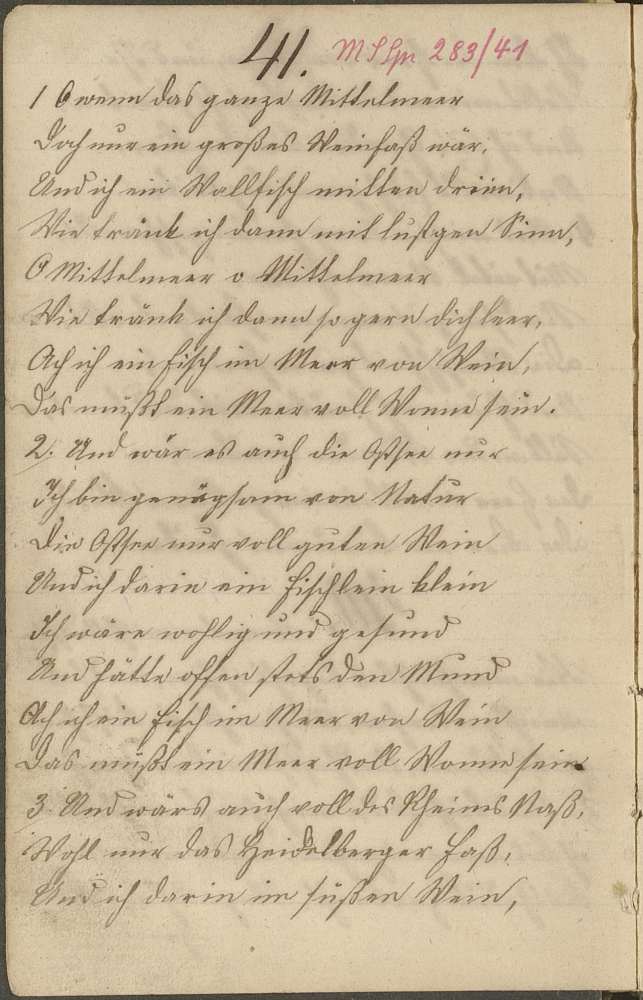 41. MSLpr 283/41
1 O wenn das ganze Mittelmeer
Doch nur ein großes Weinfaß wär,
Und ich ein Wallfisch mitten drinn,
Wie tränk ich dann mit lustgen Sinn,
O Mittelmeer o Mittelmeer
Wie tränk ich dann so gern dich leer,
Ach ich ein Fisch im Meer von Wein,
Das müßt ein Meer voll Wonne sein.
2. Und wär es auch die Ostsee nur
Ich bin genügsam von Natur
Die Ostsee nur voll guten Wein
Und ich darin ein Fischlein klein
Ich wäre wohlig und gesund
Und hätte offen stets den Mund
Ach ich ein Fisch im Meer von Wein
Das müßt ein Meer voll Wonne sein
3. Und wärs auch voll des Rheines Naß,
Wohl nur das Heidelberger Faß,
Und ich darin im süßen Wein,